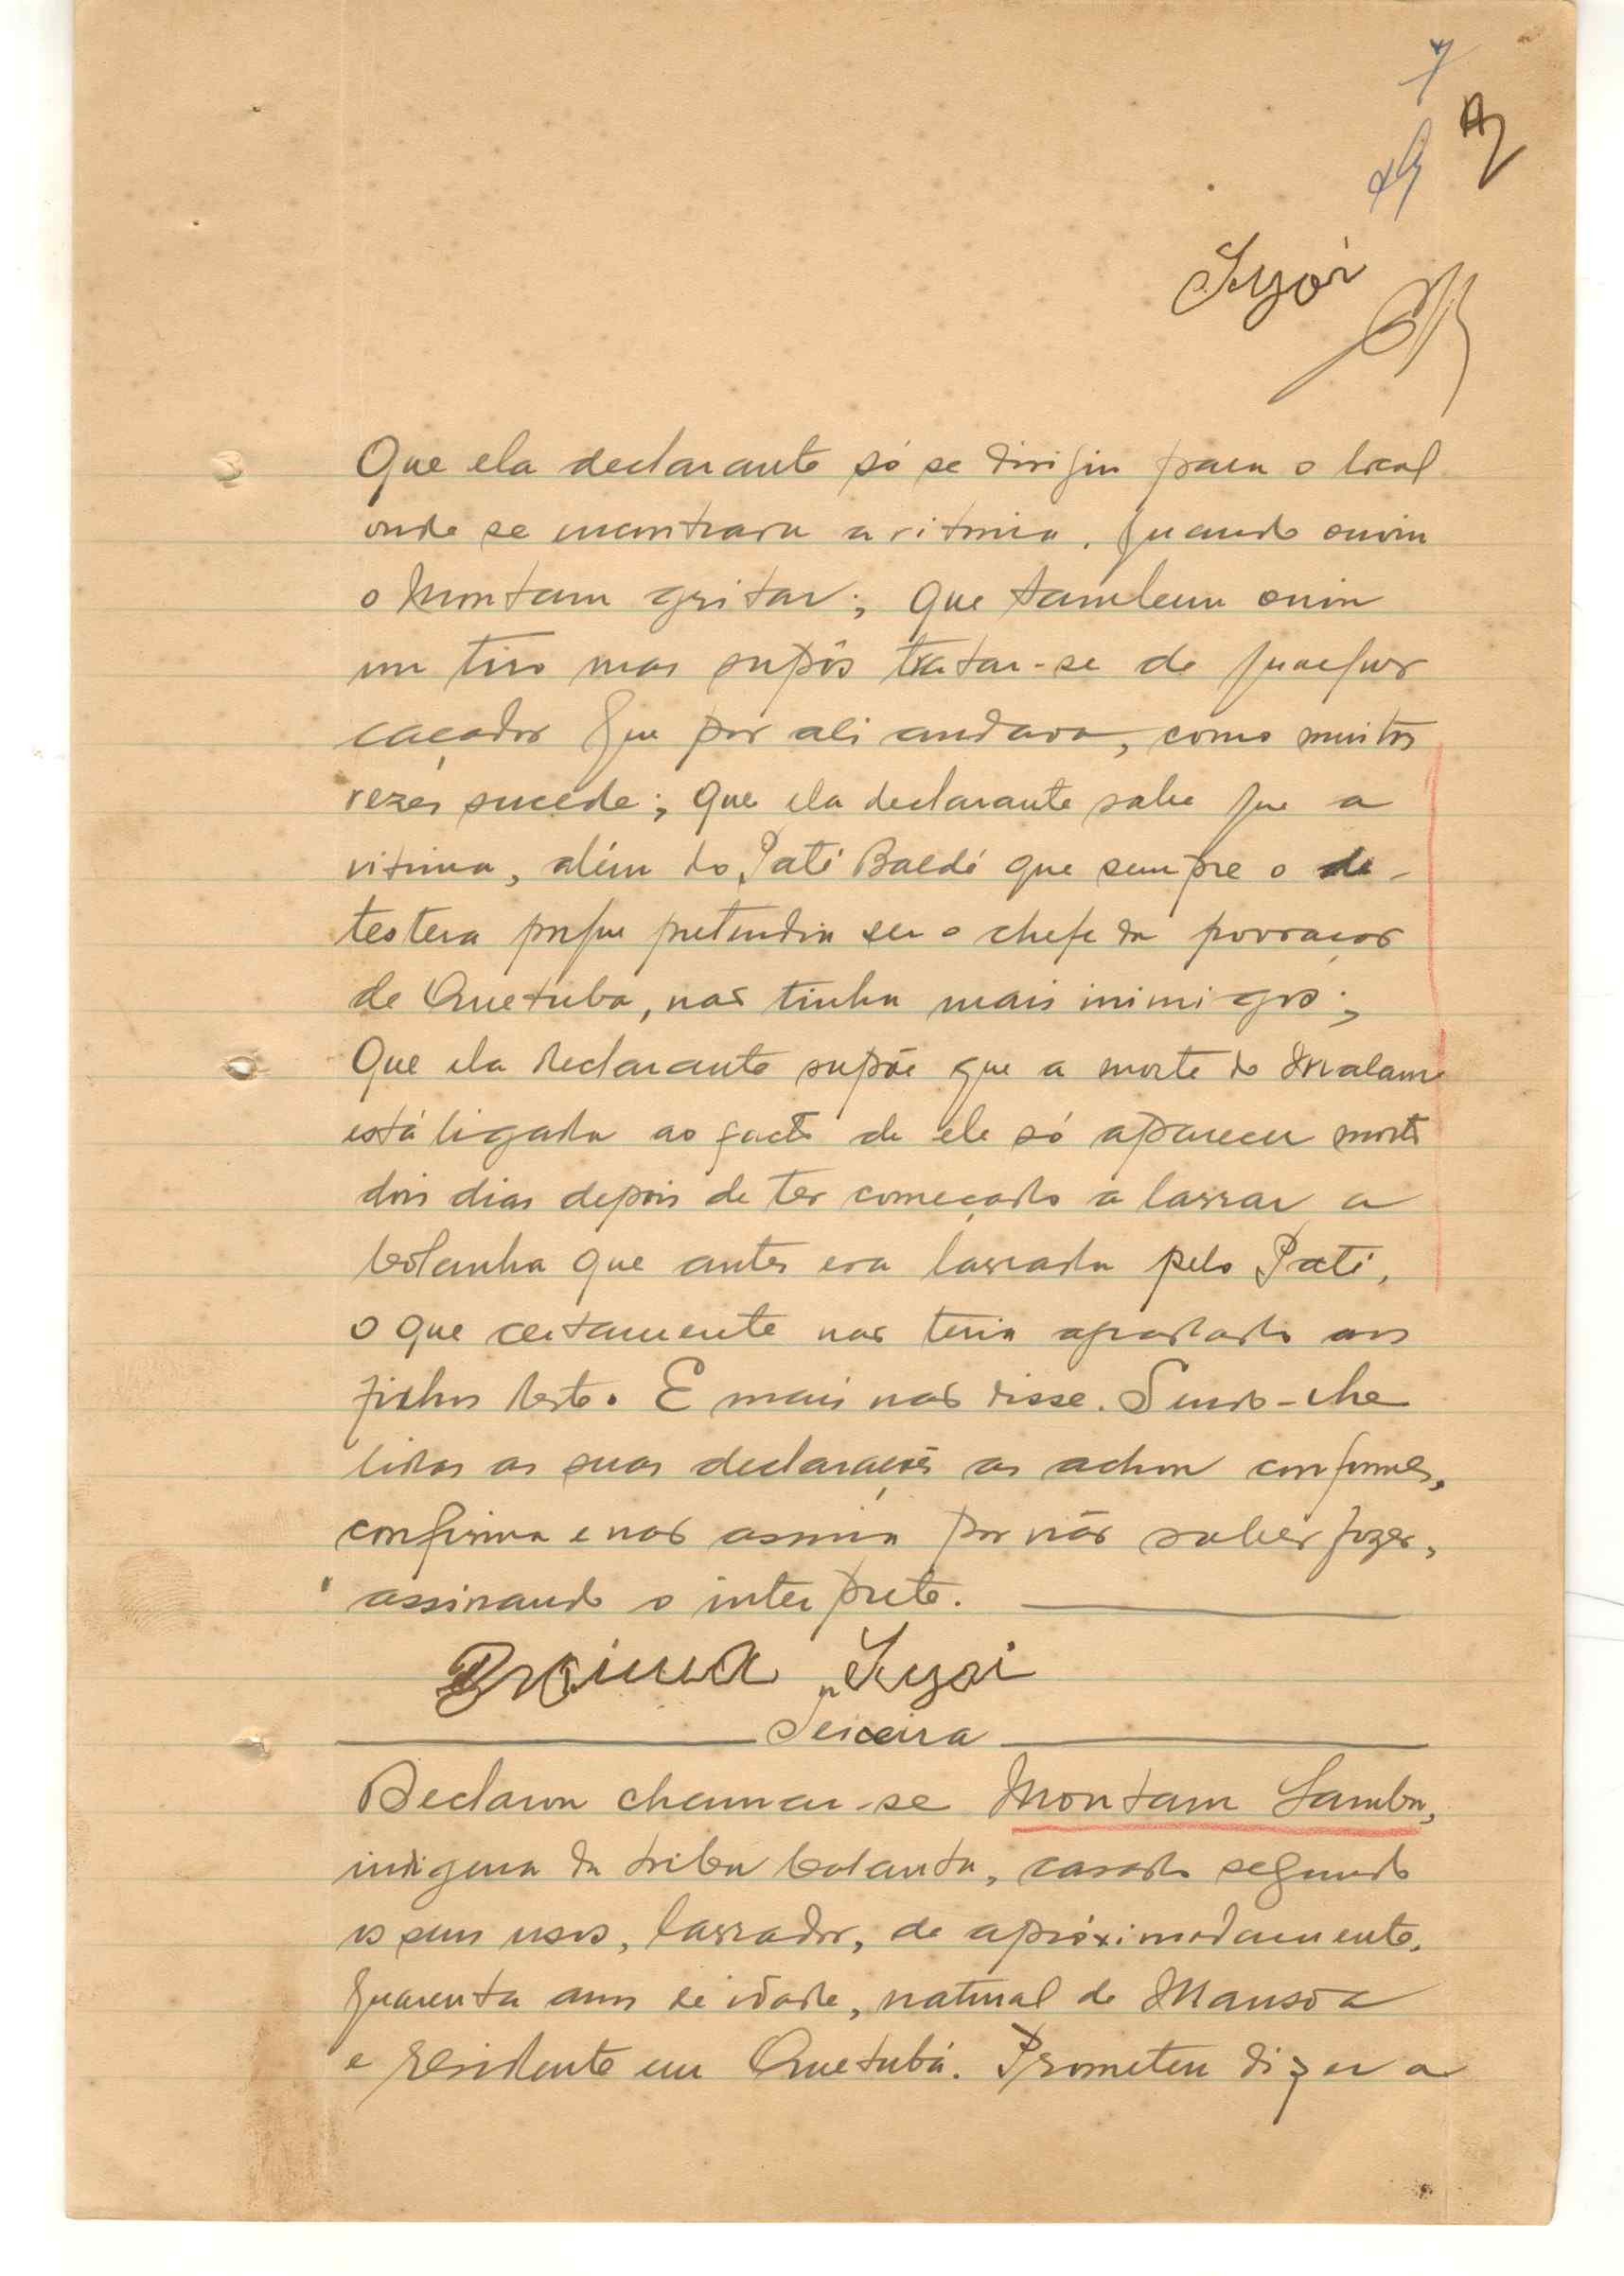 7
Injai
Que ela declarante só se dirigiu para o local
onde se encontrava a vitima, quando ouviu
o Montam gritar; que tambem ouviu
um tiro mas supôs tratar-se de qualquer
caçador que por ali andava, como muitas
vezes sucede; que ela declarante sabe que a
vitima, além do Pati Baldé que sempre o de-
testera porque pretendia ser o chefe da povoação
de Quetuba, não tinha mais inimigos;
Que ela declarante supõe que a morte do
está ligada ao facto de ele só aparecer morto
dois dias depois de ter começado a lavrar a
bolanha que antes era lavrada pelo Pati,
o que certamente não teria agradado aos
filhos deste. E mais não disse. Sendo-lhe
lidas as suas declarações as achou conformes,
confirma e não assina por não saber fazer,
assinando o interprete.
Braima Injai
Terceira
Declarou chamar-se Montam Sambu,
indigena da tribu balanta, casado segundo
os seus usos, lavrador, de apróximadamente,
quarenta anos de idade, natural de Mansôa
e residente em Quetubá. Prometeu dizer a